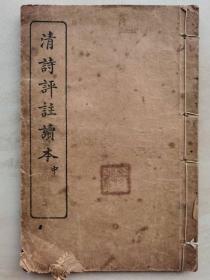 清詩評註讀本中